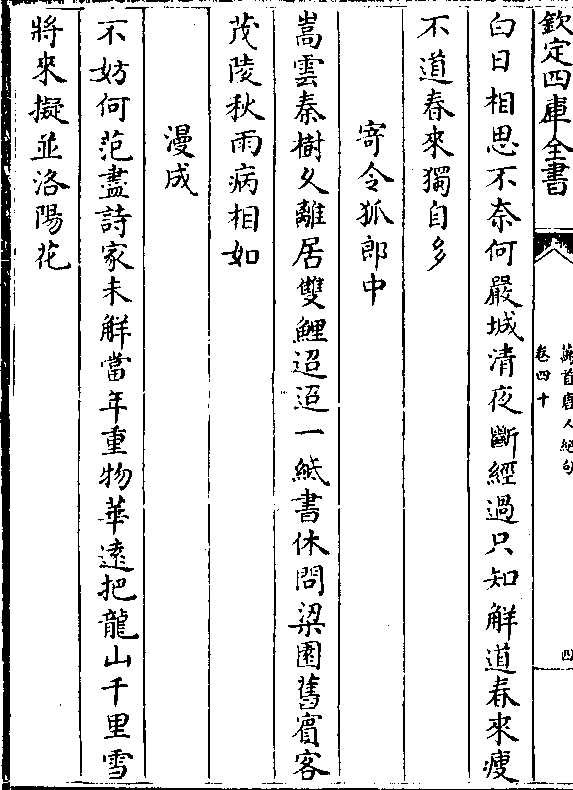 欽定四庫全書
萬首唐人絕句
卷四十
四
白日相思不奈何嚴城清夜斷經過只知解道春來瘦
不道春來獨自多
寄令狐郎中
嵩雲秦樹乆離居雙鯉迢迢一紙書休問梁園舊賔客
茂陵秋雨病相如
漫成
不妨何范盡詩家未觧當年重物華逺把龍山千里雪
將來擬並洛陽花